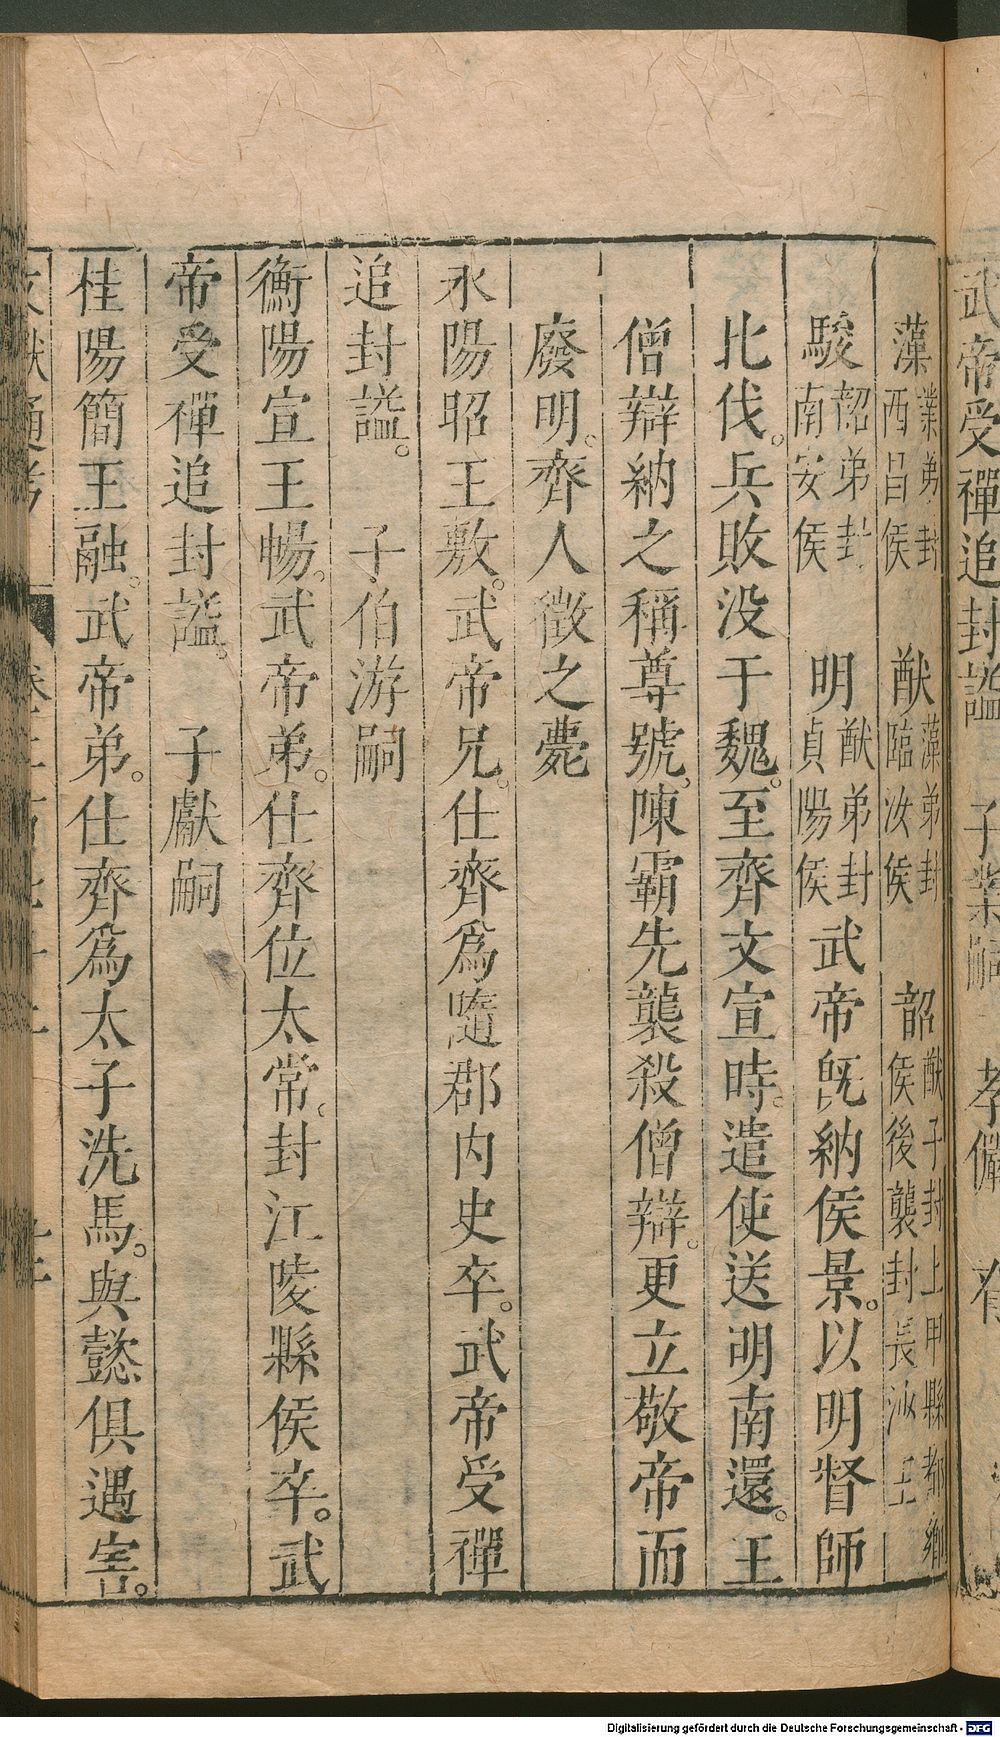 武帝受禪追封謚　子業嗣　孝儼　
藻業弟封西昌侯　猷藻弟封臨汝侯　韶猷子封上甲縣都鄉侯後襲封長沙王
駿韶弟封南安侯　明猷弟封貞陽侯武帝旣納侯景。以明督師
比伐。兵敗没于魏。至齊文宣時。遣使送明南還。王
僧辯納之稱尊號。陳霸先襲殺僧辯。更立敬帝而
廢明。齊人徵之薨
永陽昭王敷。武帝兄。仕齊爲隨郡内史卒。武帝受禪
追封謚。　子伯游嗣
衡陽宣王暢。武帝弟。仕齊位太常。封江陵縣侯卒。武
帝受禪追封謚。　子獻嗣
桂陽簡王融。武帝弟。仕齊爲太子洗馬。與懿俱遇害。
文獻通考
Digitalisierung gefördert durch die Deutsche Forschungsgemeinschaft - DFG